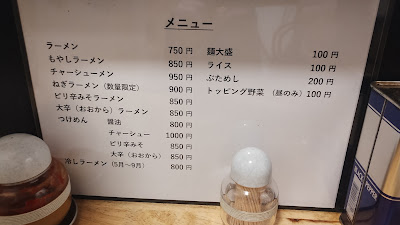 メニュー
ラーメン 750 円
もやしラーメン 850 円
チャーシューメン 950 円
ねぎラーメン (数量限定) 900 円
ピリ辛みそラーメン 850 円
大辛 (おおから) ラーメン 850 円
つけめん 醤油 800 円
チャーシュー 1000 円
ピリ辛みそ 850 円
大辛 (おおから) 850 円
冷しラーメン (5月～9月) 800 円
麺大盛 100 円
ライス 100 円
ぶためし 200 円
トッピング野菜 (昼のみ) 100 円